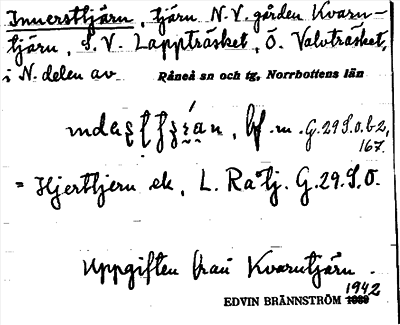 Innersttjärn, tjärn N.V. gården Kvarn-
tjärn, S.V. Lappträsket, Ö. Valvträsket,
i N. delen av Råneå sn och tg, Norrbottens län
, bf. m. G.29 S.o.b2,
167.
= Hjerttjern ek, L. Råtj. G.29.S.O.
Uppgiften från Kvarntjärn.
1942
EDVIN BRÄNNSTRÖM 1939